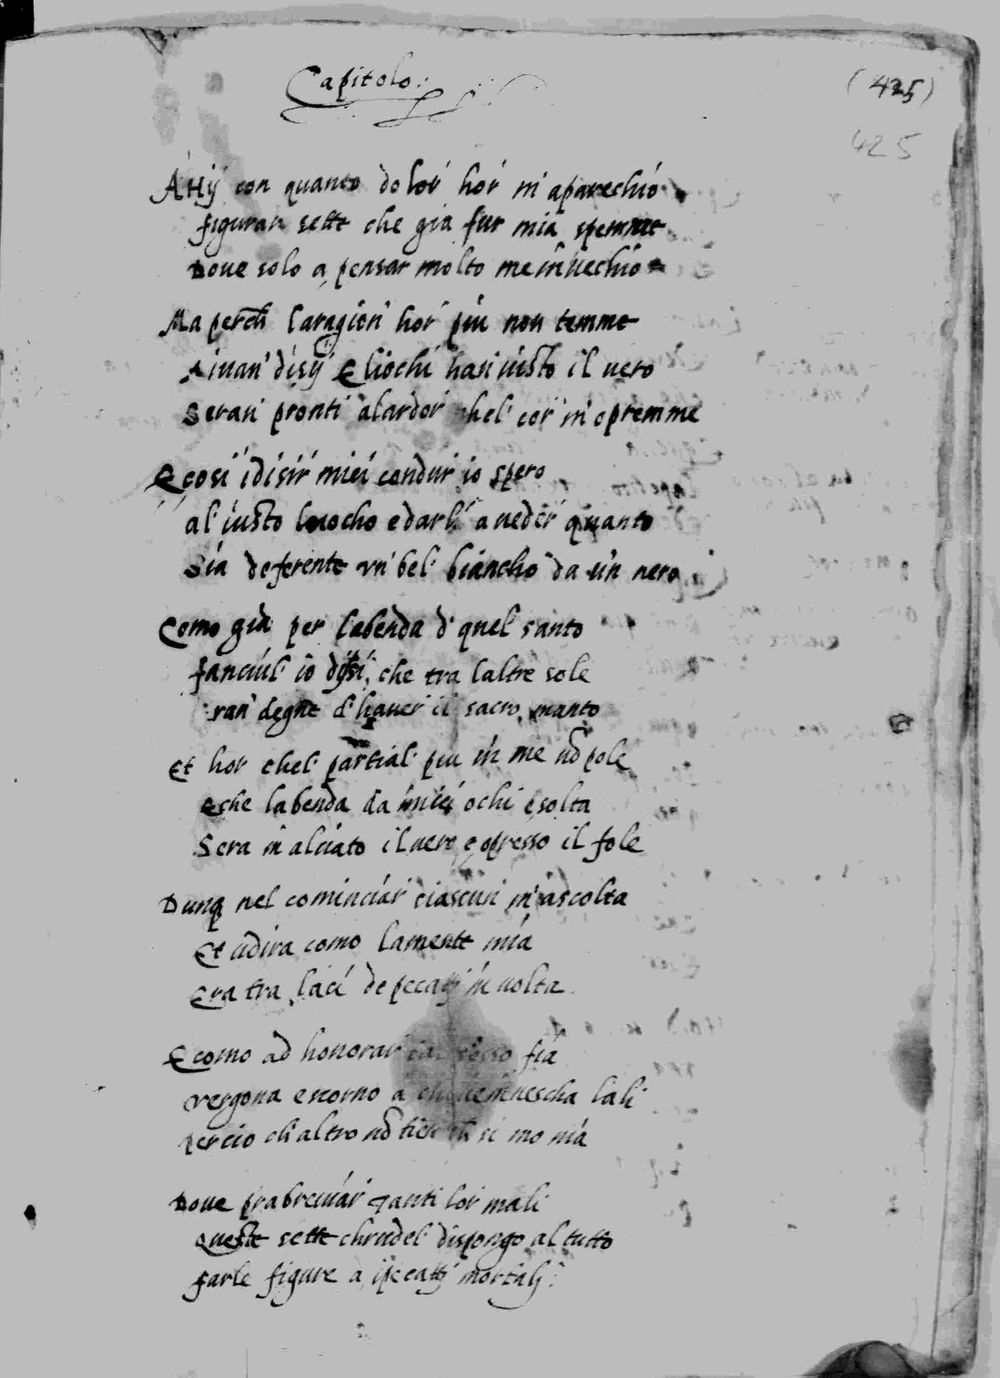 Capitolo.
(425)
425
AHij con quanto dolor hor m'aparechio
figurar sette che gia fur mia spemme
Doue solo a pensar molto me inuechio
Ma perch laragion hor piu non temme
E liochi han uisto il uero
Seran pronti alardor chel cor m'opremme
E cosi idisir miei condur io spero
al iusto luocho e darli a ueder quanto
Sia deferente un bel biancho da un nero
Como gia per labenda d quel santo
fanciul io dissi, che tra laltre sole
eran degne d'hauer il sacro manto
Et hor chel partial piu in me nō pole
e che labenda da miei ochi e solta
Sera inalciato il uero e opresso il fole
Dunq nel cominciar ciascun m'ascolta
Et udira como lamente mia
era tra laci de pecatj inuolta
E como ad honorar fia
vergona e scorno a lali
percio ch'altro nō
Doue p abreuiar tanti lor mali
queste sette chrudel dispongo al tutto
farle figure a ipecatj mortalj.